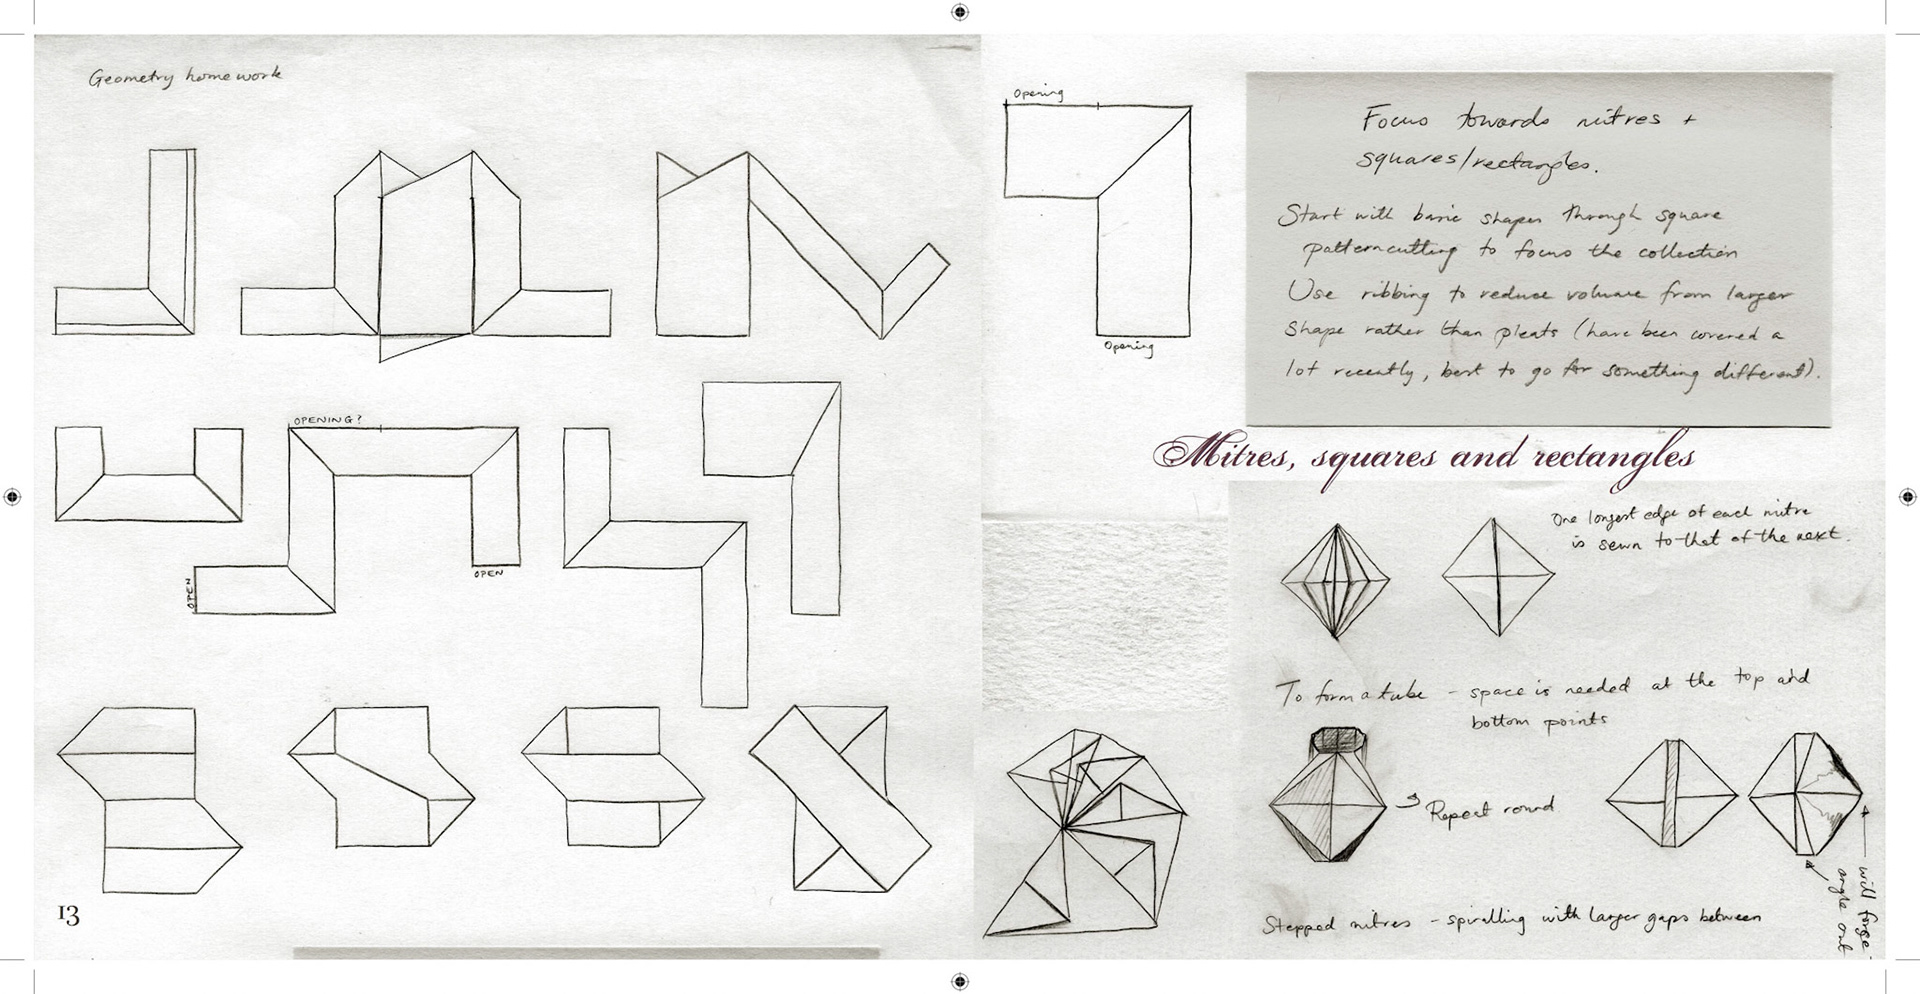 Geometry homework
OPENING?
OPEN
OPEN
13
Opening
Opening
Focus towards mitres +
squares/rectangles.
Start with basic shapes through square
patterncutting to focus the collection
Use ribbing to reduce volume from larger
shape rather than pleats (have been covered a
lot recently, best to go for something different).
Mitres, squares and rectangles
One longest edge of each mitre
is sewn to that of the next.
To form a tube - space is needed at the top and
bottom points
Repeat round
will force
angle out
Stepped mitres - spiralling with larger gaps between